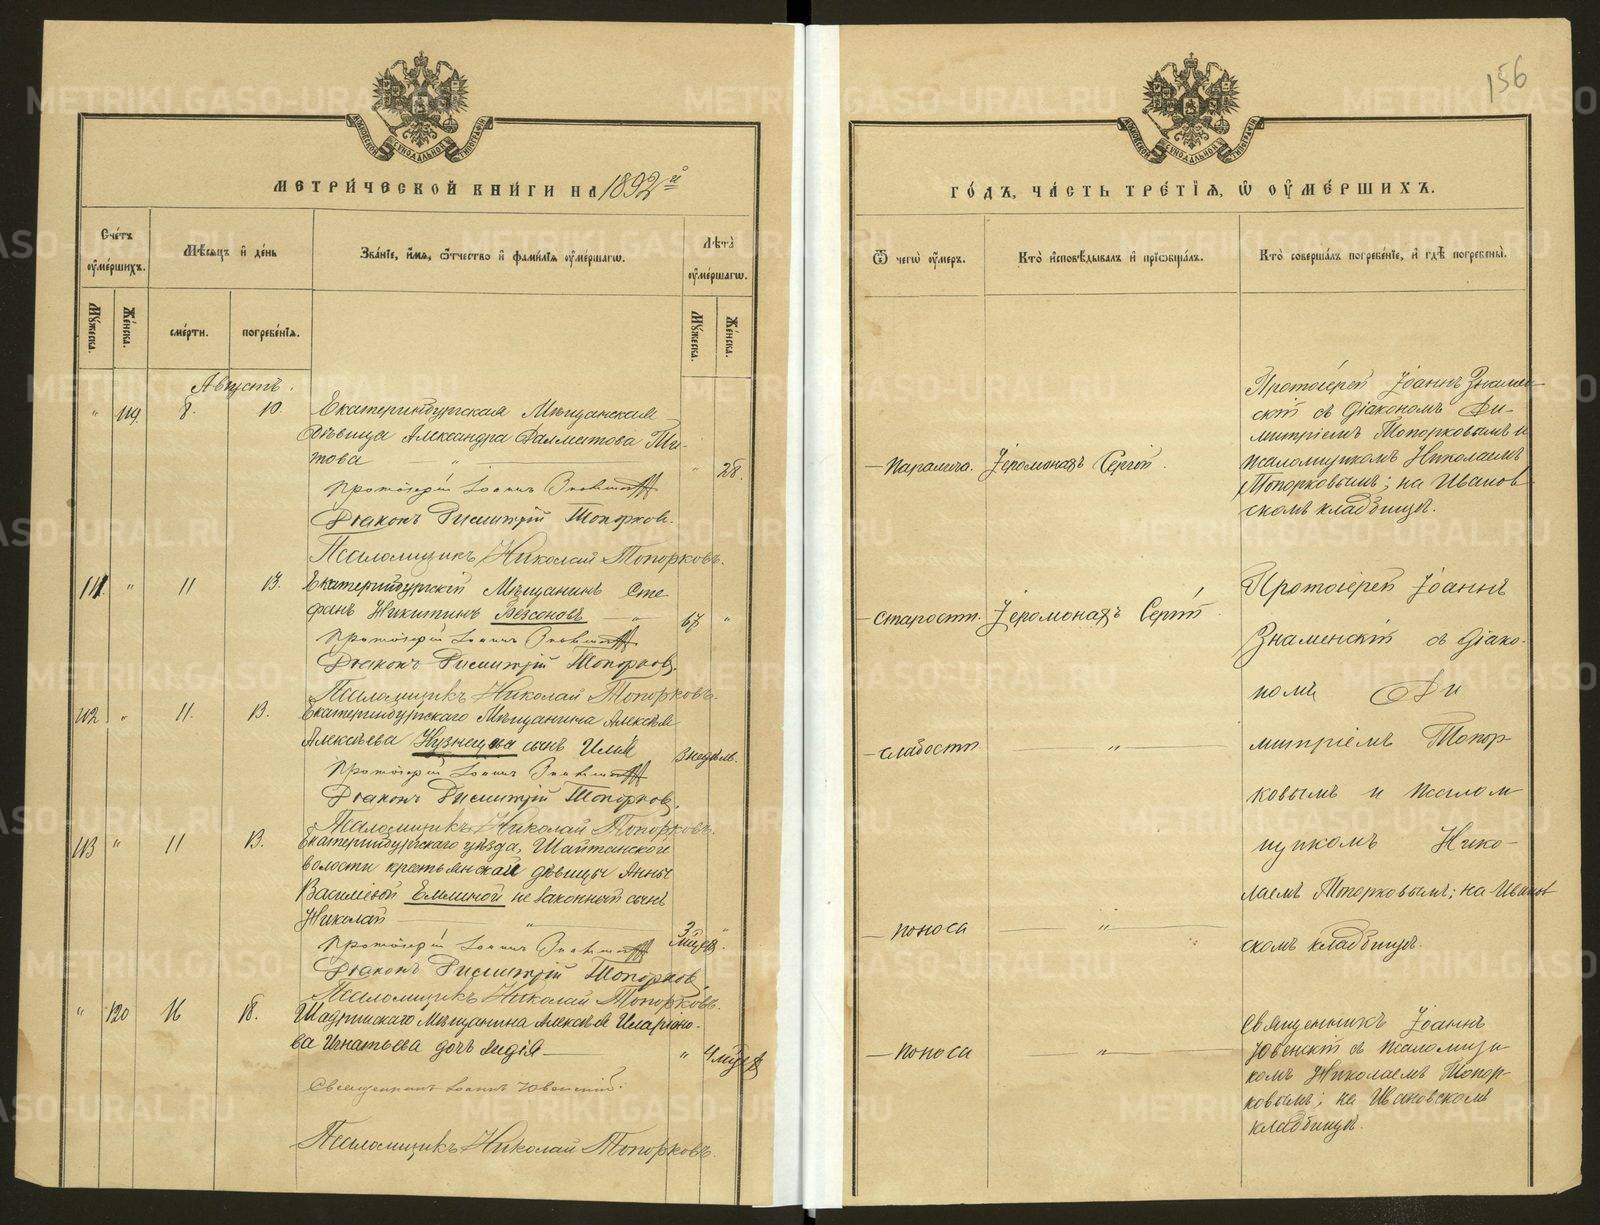 156
МЕТРИЧЕСКОЙ КНИГИ НА 1892й
Счетъ оумершихъ.
Мужеска.
Женска.
Мѣсяцъ и день
смерти.
погребенїѧ.
Званїе, имѧ, ѿчество и фамилїѧ оумершагѡ.
Лѣта оумершагѡ.
Мужеска.
Женска.
Августъ.
" 119. 8. 10. Екатеринбургская Мѣщанская
дѣвица Александра Далматова Ти-
това " 28.
Протоіерей Іоаннъ Знаменскій
Діаконъ Димитрій Топорков.
Псаломщикъ Николай Топорковъ.
111. " 11 13. Екатеринбургскій Мѣщанинъ Сте-
фанъ Никитинъ 67 "
Протоіерей Іоаннъ Знаменскій
Діаконъ Димитрій Топорков.
Псаломщикъ Николай Топорковъ.
112 " 11. 13. Екатеринбургскаго Мѣщанина Алексѣя
Алексѣева Кузнецова сынъ Илій 3 недѣль.
Протоіерей Іоаннъ Знаменскій
Діаконъ Димитрій Топорков.
Псаломщикъ Николай Топорковъ.
113 " 11 13. Екатеринбургскаго уѣзда, Шайтанской
волости крестьянской дѣвицы Анны
Василіевой Емлиной незаконный сынъ
Николай 3 мѣсяц. "
Протоіерей Іоаннъ Знаменскій
Діаконъ Димитрій Топорков.
Псаломщикъ Николай Топорковъ.
" 120 16 18. Шадринскаго Мѣщанина Алексѣя Иларіоно-
ва Игнатьева дочь Лидія " 4 мѣсяц.
Священникъ Іоаннъ Ювенскій.
Псаломщикъ Николай Топорковъ.
ГОДЪ, ЧАСТЬ ТРЕТЇѦ, Ѡ ОУМЕРШИХЪ.
Ѿ чегѡ оумеръ.
Кто исповѣдывалъ и прїѡбщалъ.
Кто совершалъ погребенїе, и гдѣ погребены.
Паралича. Іеромонахъ Сергій.
Протоіерей Іоаннъ Знамен-
скій съ діакономъ Ди-
митріемъ Топорковымъ и
псаломщикомъ Николаемъ
Топорковымъ; на Иванов
скомъ кладбищѣ.
старости. Іеромонахъ Сергій.
Протоіерей Іоаннъ
Знаменскій съ діако-
номъ Ди
слабости "
митріемъ Топор-
ковымъ и псалом
щикомъ Нико-
лаемъ Топорковымъ; на Иванов
поноса "
скомъ кладбищѣ.
поноса "
Священникъ Іоаннъ
Ювенскій съ псаломщи-
комъ Николаемъ Топор-
ковымъ; на Ивановскомъ
кладбищѣ.
METRIKI.GASO-URAL.RU